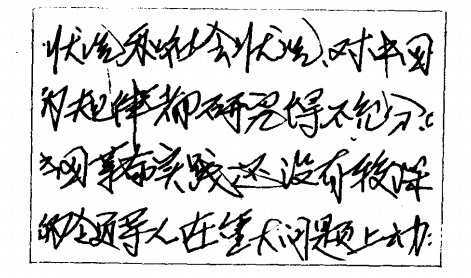 状况和社会状况、对中国
的规律都研究得不充分。
中国革命实践还没有较深
的领导人在重大问题上